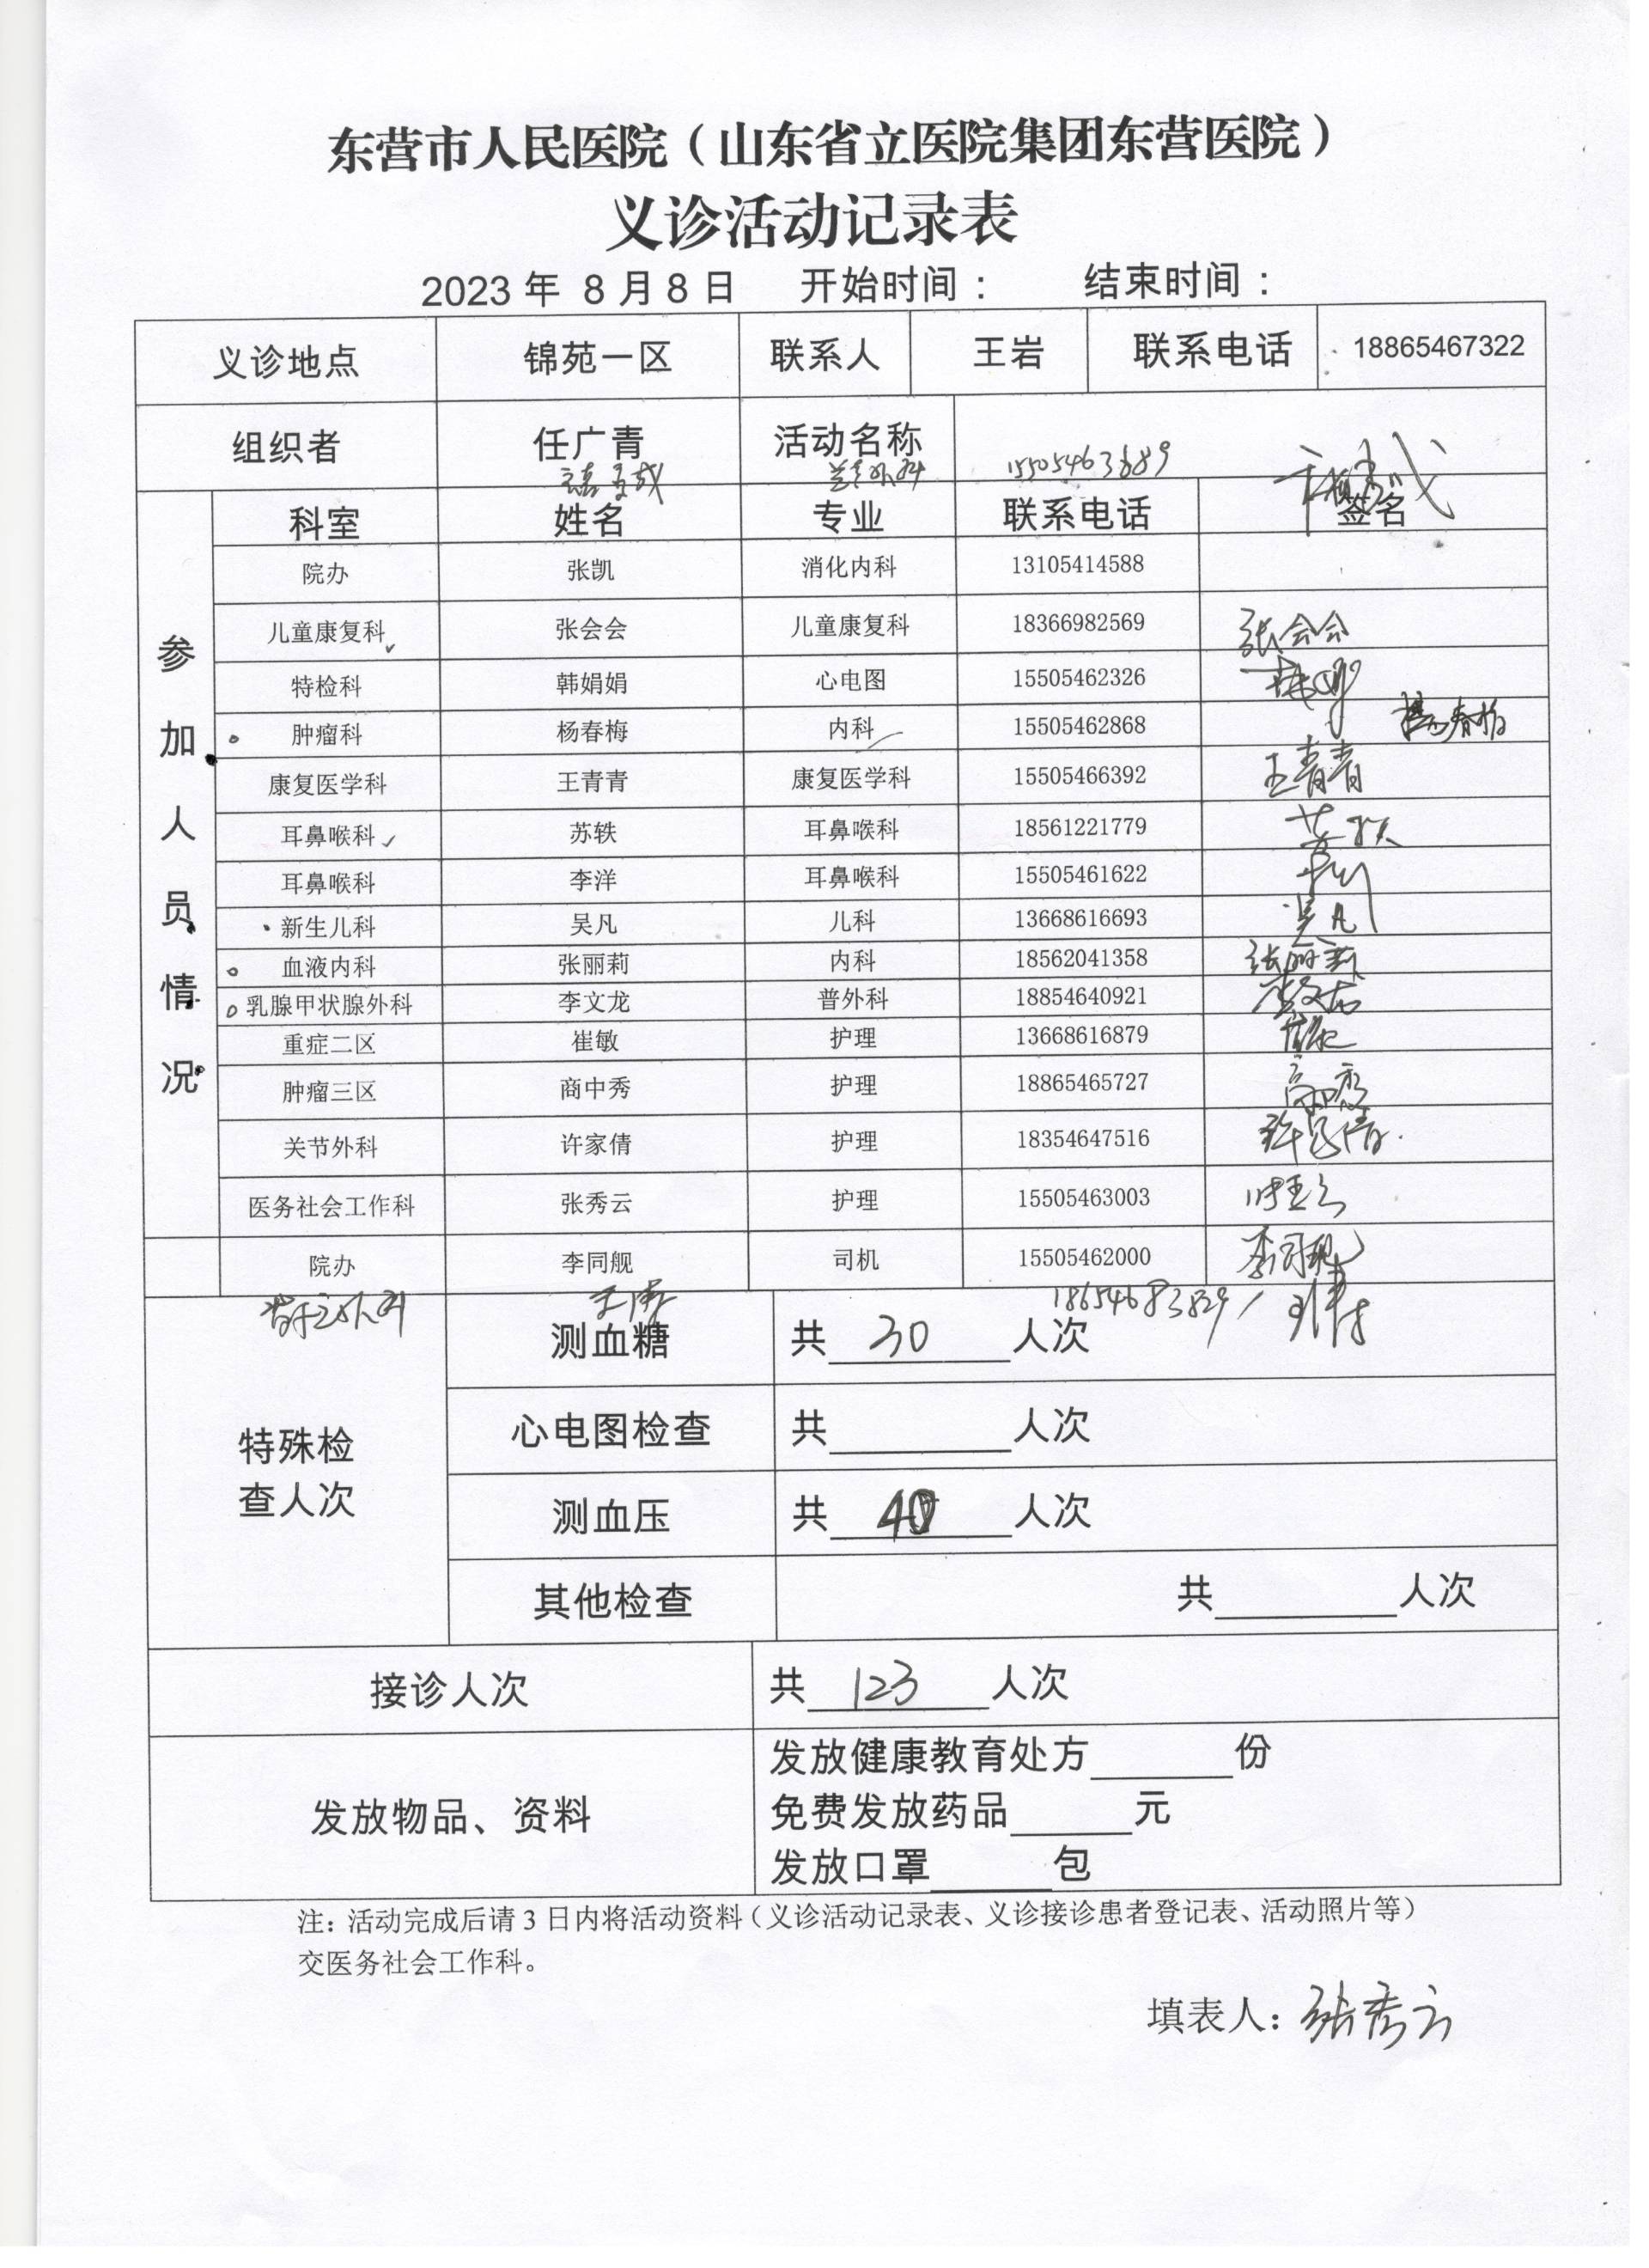 东营市人民医院（山东省立医院集团东营医院）
义诊活动记录表
2023 年 8 月 8 日 开始时间： 结束时间：
义诊地点 锦苑一区 联系人 王岩 联系电话 18865467322
组织者 任广青 活动名称
15505463889
参加人员情况
科室 姓名 专业 联系电话 签名
院办 张凯 消化内科 13105414588
儿童康复科 张会会 儿童康复科 18366982569 张会会
特检科 韩娟娟 心电图 15505462326
肿瘤科 杨春梅 内科 15505462868 杨春梅
康复医学科 王青青 康复医学科 15505466392 王青青
耳鼻喉科 苏轶 耳鼻喉科 18561221779 苏轶
耳鼻喉科 李洋 耳鼻喉科 15505461622
新生儿科 吴凡 儿科 13668616693 吴凡
血液内科 张丽莉 内科 18562041358 张丽莉
乳腺甲状腺外科 李文龙 普外科 18854640921 李文龙
重症二区 崔敏 护理 13668616879 崔敏
肿瘤三区 商中秀 护理 18865465727 商中秀
关节外科 许家倩 护理 18354647516 许家倩
医务社会工作科 张秀云 护理 15505463003
院办 李同舰 司机 15505462000 李同舰
18654683829
特殊检查人次
测血糖 共 30 人次
心电图检查 共 人次
测血压 共 40 人次
其他检查 共 人次
接诊人次 共 123 人次
发放物品、资料
发放健康教育处方 份
免费发放药品 元
发放口罩 包
注：活动完成后请 3 日内将活动资料（义诊活动记录表、义诊接诊患者登记表、活动照片等）
交医务社会工作科。
填表人：张秀云